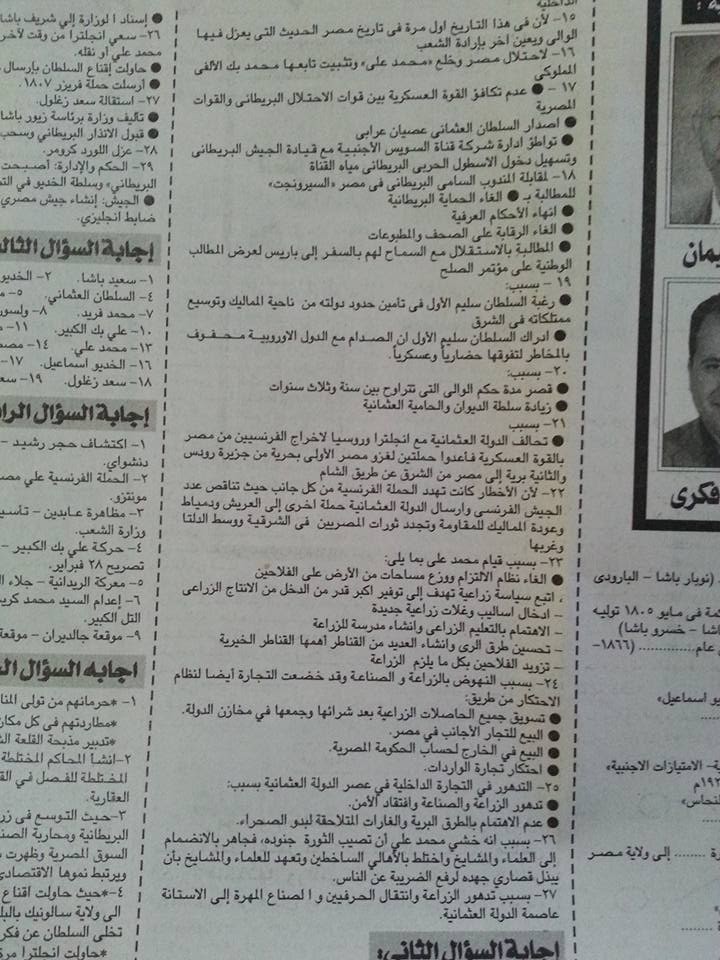 الداخلية
١٥- لأن فى هذا التاريخ اول مرة فى تاريخ مصر الحديث التى يعزل فيها
الوالى ويعين آخر بإرادة الشعب
١٦- لاحتلال مصر وخلع «محمد على» وتثبيت تابعها محمد بك الألفى
المملوكى
١٧ - ● عدم تكافؤ القوة العسكرية بين قوات الاحتلال البريطانى والقوات
المصرية
● اصدار السلطان العثمانى عصيان عرابى
● تواطؤ ادارة شركة قناة السويس الأجنبية مع قيادة الجيش البريطانى
وتسهيل دخول الاسطول الحربى البريطانى مياه القناة
١٨- لمقابلة المندوب السامى البريطانى فى مصر «السيرونجت»
للمطالبة بـ ● الغاء الحماية البريطانية
● انهاء الأحكام العرفية
● الغاء الرقابة على الصحف والمطبوعات
● المطالبة بالاستقلال مع السماح لهم بالسفر إلى باريس لعرض المطالب
الوطنية على مؤتمر الصلح
١٩ - بسبب:
● رغبة السلطان سليم الأول فى تامين حدود دولته من ناحية المماليك وتوسيع
ممتلكاته فى الشرق
● ادراك السلطان سليم الأول ان الصدام مع الدول الاوروبية محفوف
بالمخاطر لتفوقها حضارياً وعسكرياً.
٢٠- بسبب:
● قصر مدة حكم الوالى التى تتراوح بين سنة وثلاث سنوات
● زيادة سلطة الديوان والحامية العثمانية
٢١- بسبب
● تحالف الدولة العثمانية مع انجلترا وروسيا لاخراج الفرنسيين من مصر
بالقوة العسكرية فأعدوا حملتين لغزو مصر الأولى بحرية من جزيرة رودس
والثانية برية إلى مصر من الشرق عن طريق الشام
٢٢- لأن الأخطار كانت تهدد الحملة الفرنسية من كل جانب حيث تناقص عدد
الجيش الفرنسى وارسال الدولة العثمانية حملة اخرى إلى العريش ودمياط
وعودة المماليك للمقاومة وتجدد ثورات المصريين فى الشرقية ووسط الدلتا
وغربها
٢٣- بسبب قيام محمد على بما يلى:
● الغاء نظام الالتزام ووزع مساحات من الأرض على الفلاحين
، اتبع سياسة زراعية تهدف إلى توفير اكبر قدر من الدخل من الانتاج الزراعى
- ادخال اساليب وغلات زراعية جديدة
- الاهتمام بالتعليم الزراعى وانشاء مدرسة للزراعة
- تحسين طرق الرى وانشاء العديد من القناطر أهمها القناطر الخيرية
- تزويد الفلاحين بكل ما يلزم الزراعة
٢٤- بسبب النهوض بالزراعة و الصناعة وقد خضعت التجارة أيضا لنظام
الاحتكار من طريق:
● تسويق جميع الحاصلات الزراعية بعد شرائها وجمعها في مخازن الدولة.
● البيع للتجار الأجانب في مصر.
● البيع في الخارج لحساب الحكومة المصرية.
● احتكار تجارة الواردات.
٢٥- التدهور في التجارة الداخلية في عصر الدولة العثمانية بسبب:
● تدهور الزراعة والصناعة وافتقاد الأمن.
● عدم الاهتمام بالطرق البرية والغارات المتلاحقة لبدو الصحراء.
٢٦- بسبب انه خشي محمد علي أن تصيب الثورة جنوده، فجاهر بالانضمام
إلى العلماء والمشايخ واختلط بالأهالي الساخطين وتعهد للعلماء والمشايخ بأن
يبذل قصاري جهده لرفع الضريبة عن الناس.
٢٧- بسبب تدهور الزراعة وانتقال الحرفيين و الصناع المهرة إلى الاستانة
عاصمة الدولة العثمانية.
اجابة السؤال الثانى:
● إسناد الوزارة إلي شريف باشا
٢٦- سعي انجلترا من وقت لآخر
محمد علي أو نقله.
● حاولت إقناع السلطان بإرسال
● أرسلت حملة فريزر ١٨٠٧
٢٧- استقالة سعد زغلول.
● تأليف وزارة برئاسة زيور باشا
● قبول الانذار البريطاني وسحب
٢٨- عزل اللورد كرومر.
٢٩- الحكم والإدارة: أصبحت
البريطاني» وسلطة الخديو في الت
● الجيش: إنشاء جيش مصري
ضابط انجليزي.
إجابة السؤال الثالث
١- سعيد باشا. ٢- الخديو
٤- السلطان العثماني. ٥- م
٧- محمد فريد. ٨- ولسون
١٠- علي بك الكبير. ١١- م
١٣- محمد علي. ١٤- مصط
١٦- الخديو اسماعيل. ١٧-
١٨- سعد زغلول. ١٩- سعد
إجابة السؤال الرابع
١- اكتشاف حجر رشيد -
دنشواي.
٢- الحملة الفرنسية علي مصر
مونترو.
٣- مظاهرة عابدين - تأسيس
وزارة الشعب.
٤- حركة علي بك الكبير -
تصريح ٢٨ فبراير.
٥- معركة الريدانية - جلاء ال
٦- إعدام السيد محمد كريم
التل الكبير.
٩- موقعة جالديران - موقعة
اجابة السؤال ال
١- *حرمانهم من تولى المنا
*مطاردتهم فى كل مكان
*تدبير مذبحة القلعة
٢- انشأ المحاكم المختلطة
المختلطة للفصل في الق
العقارية.
٣- حيث التوسع فى زر
البريطانية ومحاربة الصنا
السوق المصرية وظهرت
ويرتبط نموها الاقتصادى
٤- *حيث حاولت اقناع
الى ولاية سالونيك بالبلقان
تخلى السلطان عن فكرة
*حاولت انجلترا مرة
يمان
فكرى
(نوبار باشا - البارودى
كمة فى مايو ١٨٠٥ توليه
باشا - خسرو باشا)
عام ............ (١٨٦٦-
يو اسماعيل»
ية- الامتيازات الاجنبية»
النحاس»
رة ........ إلى ولاية مصر